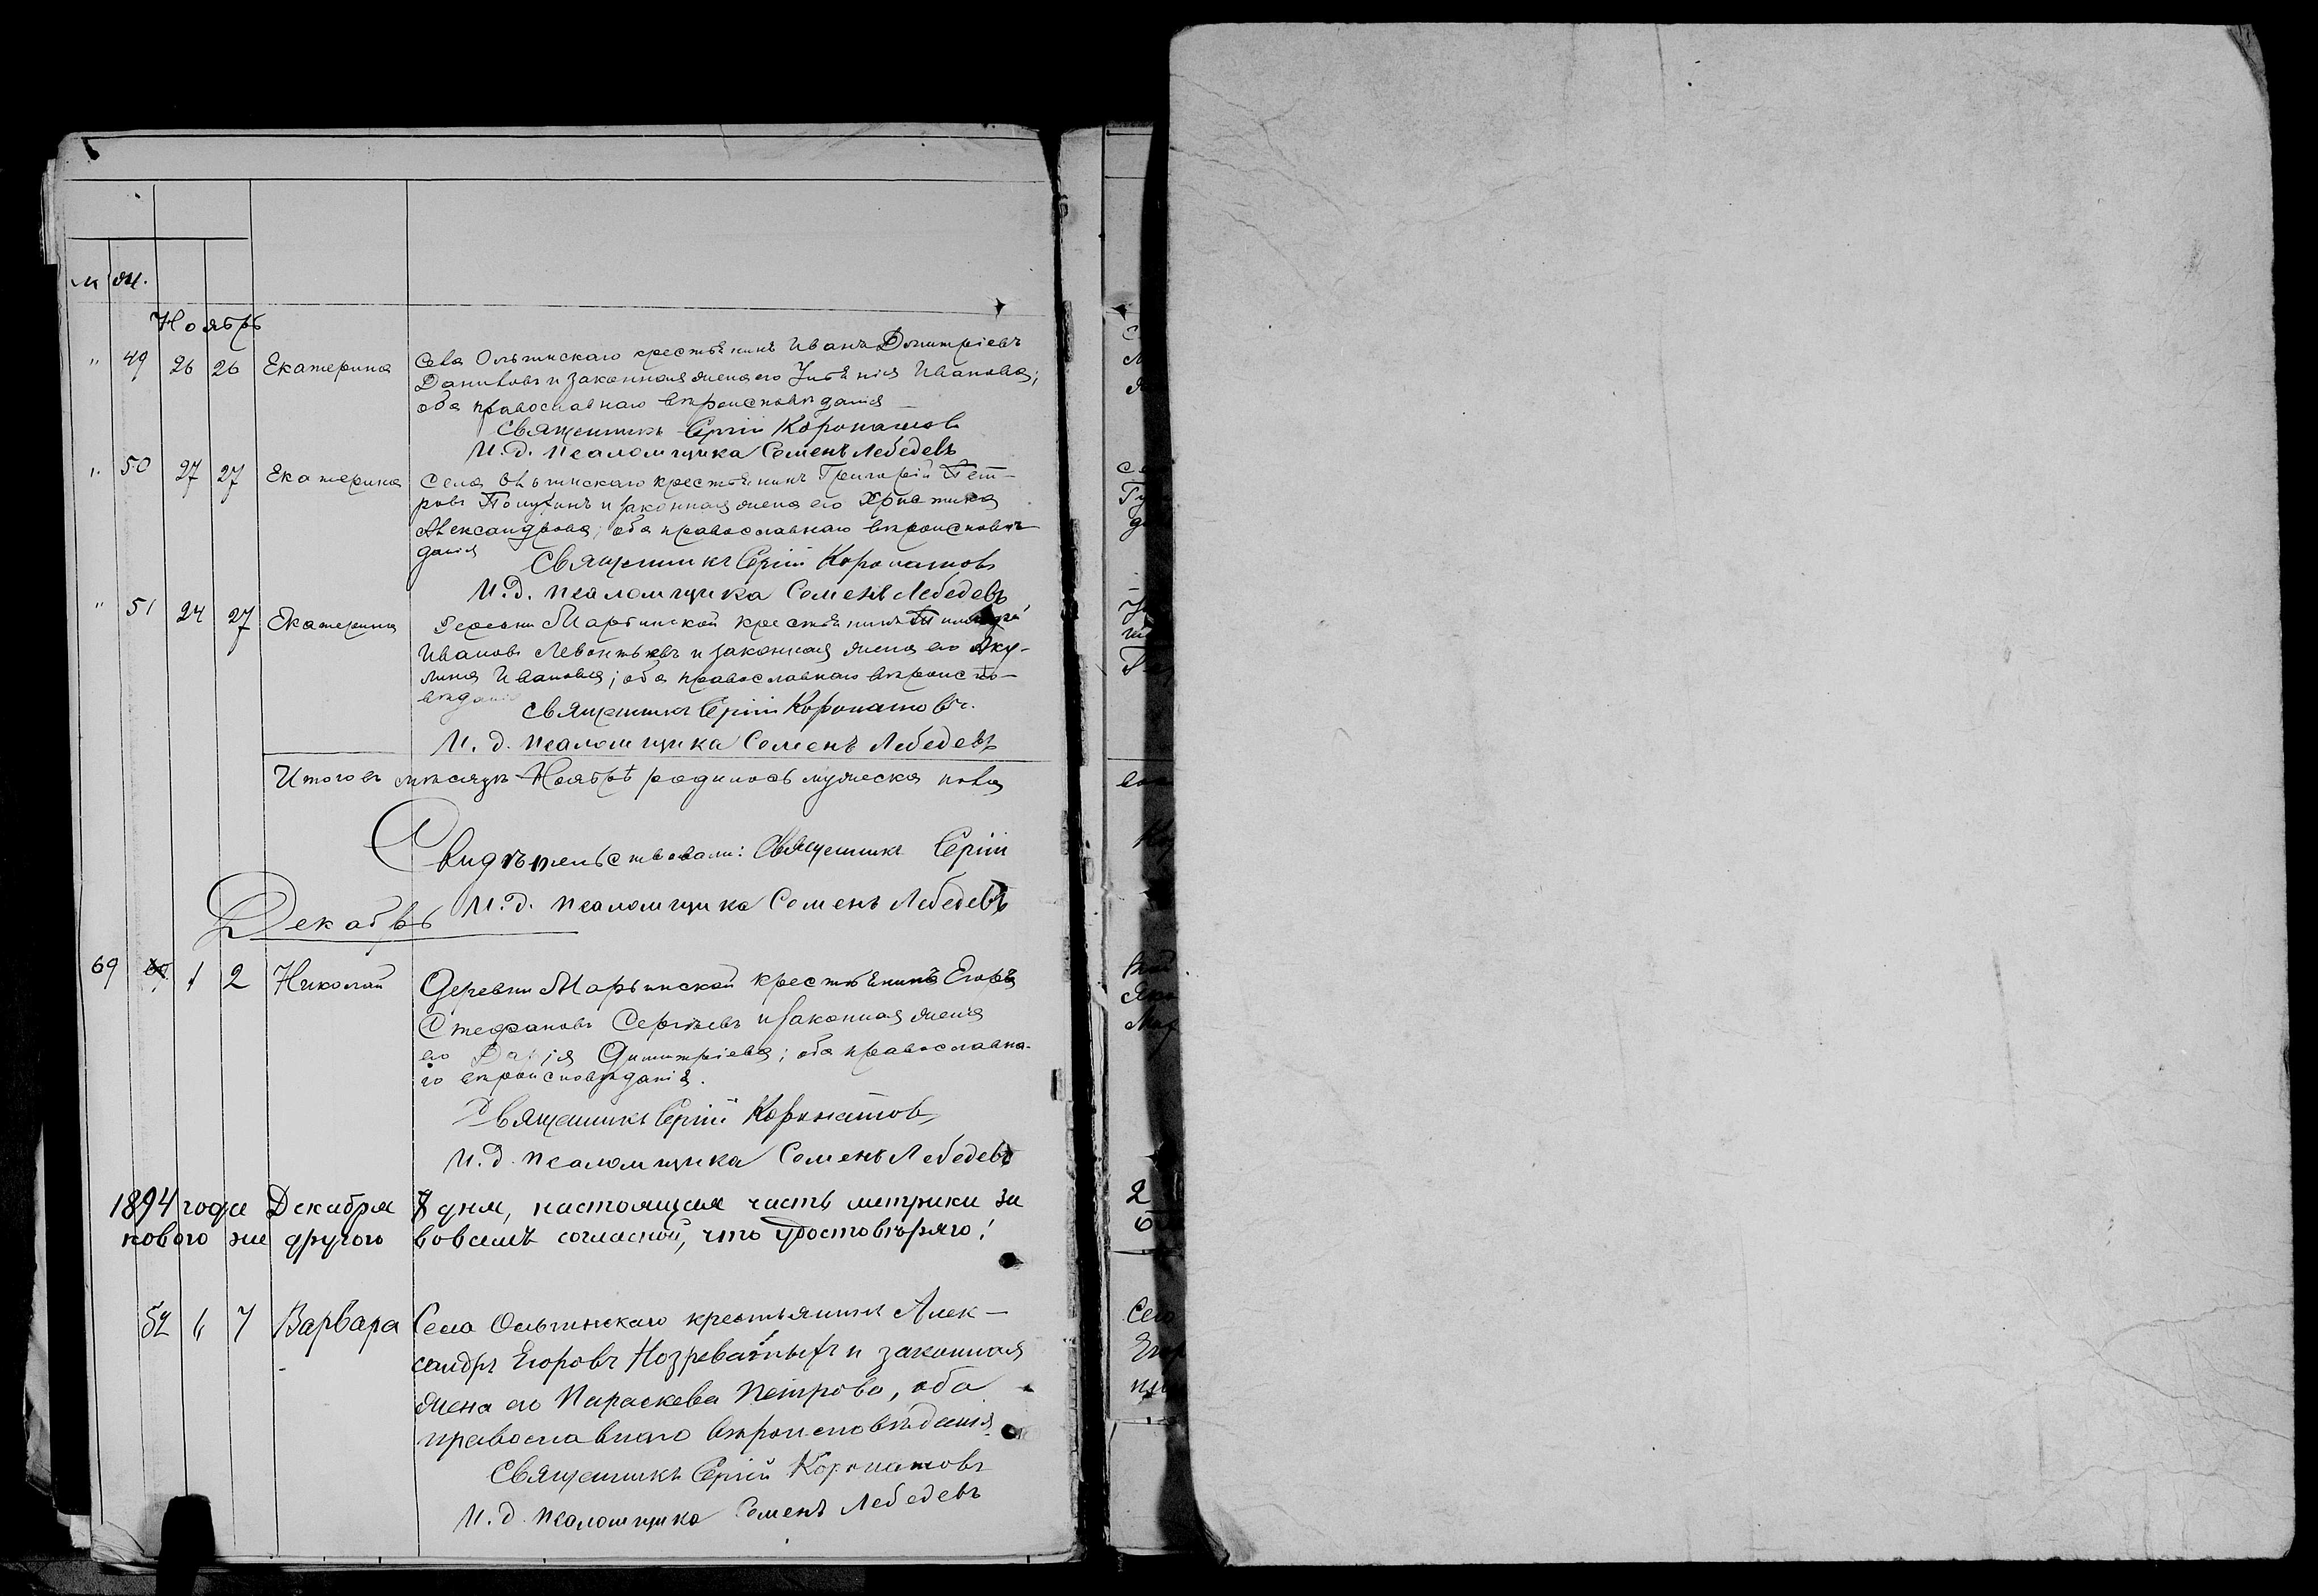 м ж.
Ноябрь
" 49 26 26 Екатерина Села Ольгинскаго крестьянинъ Иванъ Дмитріевъ
Даниловъ и законная жена его Устинія Иванова;
оба православнаго вѣроисповѣданія
Священникъ Сергій Коронатовъ
И.д. псаломщика Семенъ Лебедевъ
" 50 27 27 Екатерина Села Ольгинскаго крестьянинъ Григорій Пет-
ровъ и законная жена его Христина
Александрова; оба православнаго вѣроисповѣ-
данія
Священникъ Сергій Коронатовъ
И.д. псаломщика Семенъ Лебедевъ
" 51 24 27 Екатерина Деревни Марьинской крестьянинъ
Ивановъ Левонтьевъ и законная жена его Аку-
лина Иванова; оба православнаго вѣроиспо-
вѣданія
Священникъ Сергій Коронатовъ.
И.д. псаломщика Семенъ Лебедевъ
Итого въ мѣсяцѣ Ноябрѣ родилось мужеска пола
Свидѣтельствовали: Священникъ Сергій
И.д. псаломщика Семенъ Лебедевъ
Декабрь
69 1 2 Николай Деревни Марьинской крестьянинъ Егоръ
Стефановъ Сергѣевъ и законная жена
его Дарія Димитріева; оба православна-
го вѣроисповѣданія.
Священникъ Сергій Коронатовъ
И.д. псаломщика Семенъ Лебедевъ
1894 года Декабря 7 дня, настоящая часть метрики за
нового же другого вовсемъ согласной, что удостовѣряю!
52 6 7 Варвара Села Ольгинскаго крестьянинъ Алек-
сандръ Егоровъ Ноздреватыхъ и законная
жена его Параскева Петрова, оба
православнаго вѣроисповѣданія.
Священникъ Сергій Коронатовъ
И.д. псаломщика Семенъ Лебедевъ